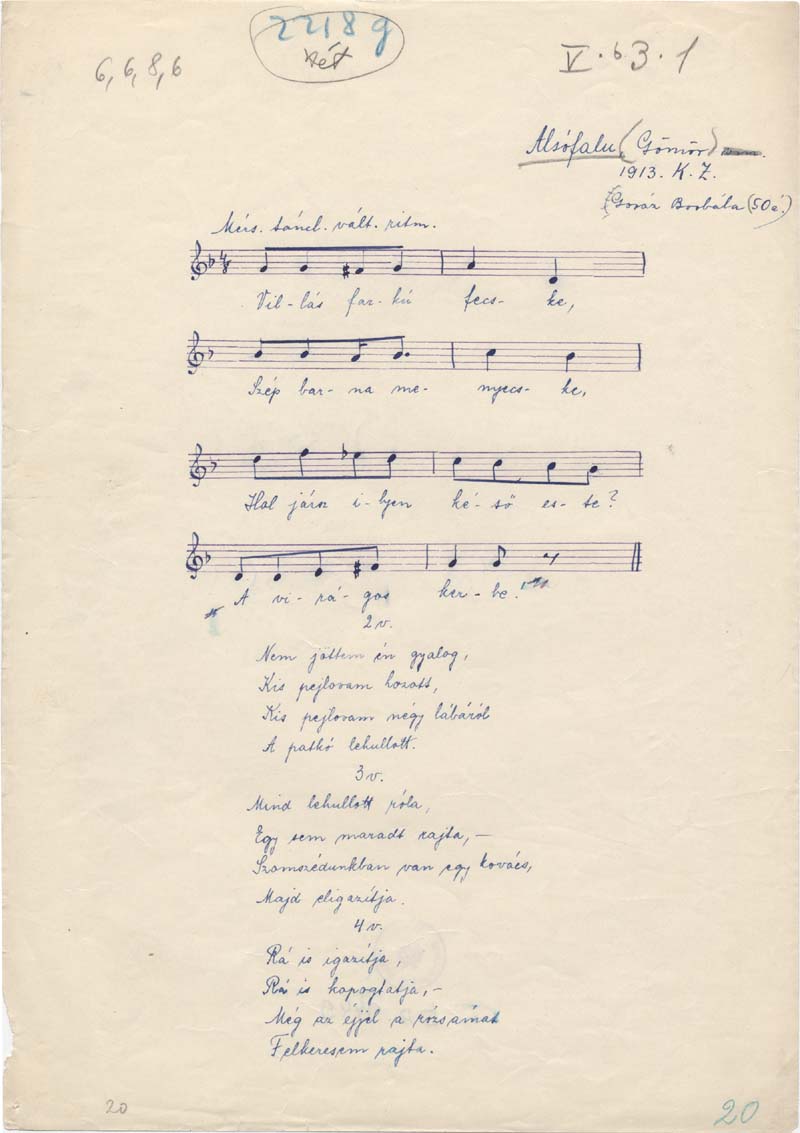 2218g
6, 6, 8, 6
V. b 3. 1
Alsófalu (Gömör)
1913. K. Z.
Borbála (50 é.)
Mérs. táncl. vált. ritm.
Vil-lás far-kú fecs-ke,
Szép bar-na me-nyecs-ke,
Hol jársz i-lyen ké-ső es-te?
"A vi-rá-gos ker-be."
2 v.
Nem jöttem én gyalog,
Kis pejlovam hozott,
Kis pejlovam négy lábáról
A patkó lehullott.
3 v.
Mind lehullott róla,
Egy sem maradt rajta, –
Szomszédunkban van egy kovács,
Majd eligazítja.
4 v.
Rá is igazítja,
Rá is kopogtatja, –
Még az éjjel a rózsámat
Felkeresem rajta.
20
20